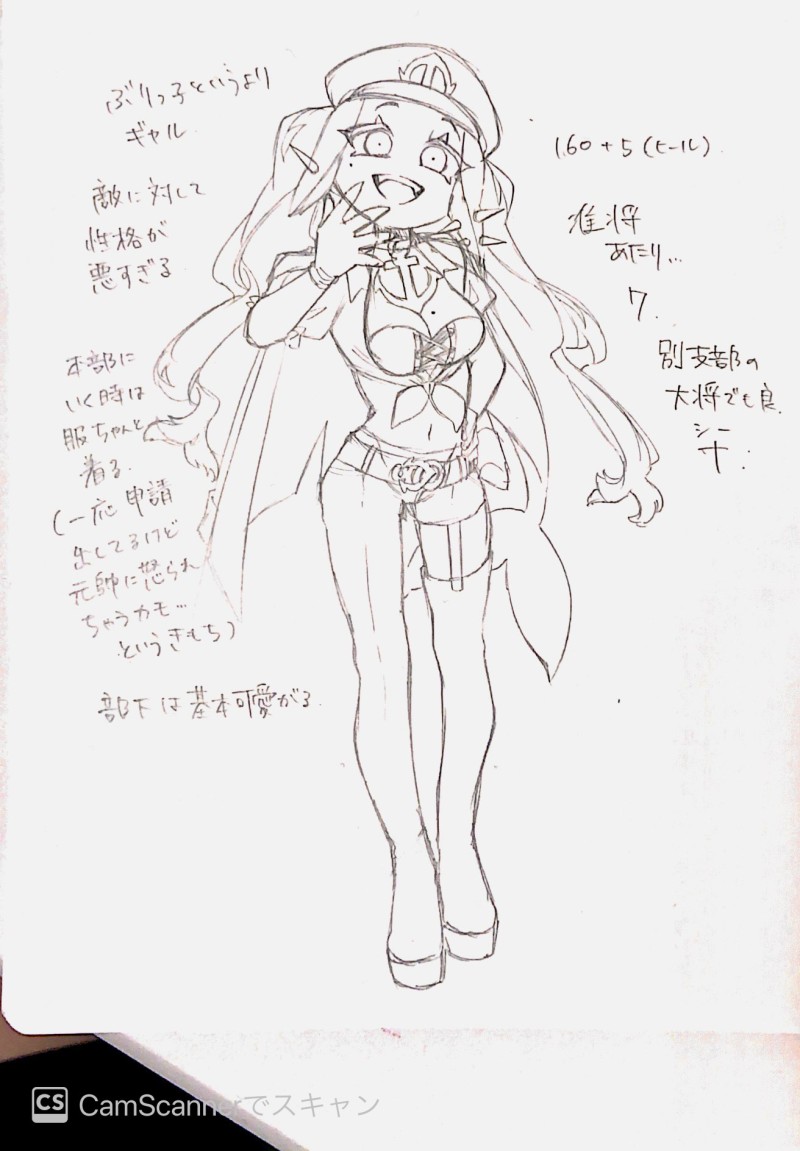 ぶりっ子というより
ギャル
敵に対して
性格が
悪すぎる
本部に
いく時は
服ちゃんと
着る.
(一応申請
出してるけど
元帥に怒られ
ちゃうカモ…
というきもち)
部下は基本可愛がる.
160+5(ヒール)
准将
あたり…
7.
別支部の
大将でも良.
CS CamScannerでスキャン